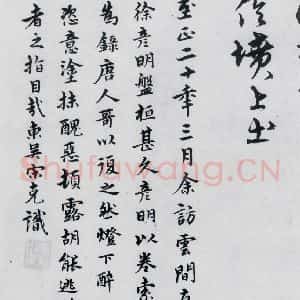 墳上土
至正二十年三月余訪雲間
徐彦明盤桓甚久彦明以卷索
為錄唐人哥以復之然燈下醉
恣意塗抹醜惡頓露胡能逃
者之指目哉東吳宋克識
Shufawang.CN